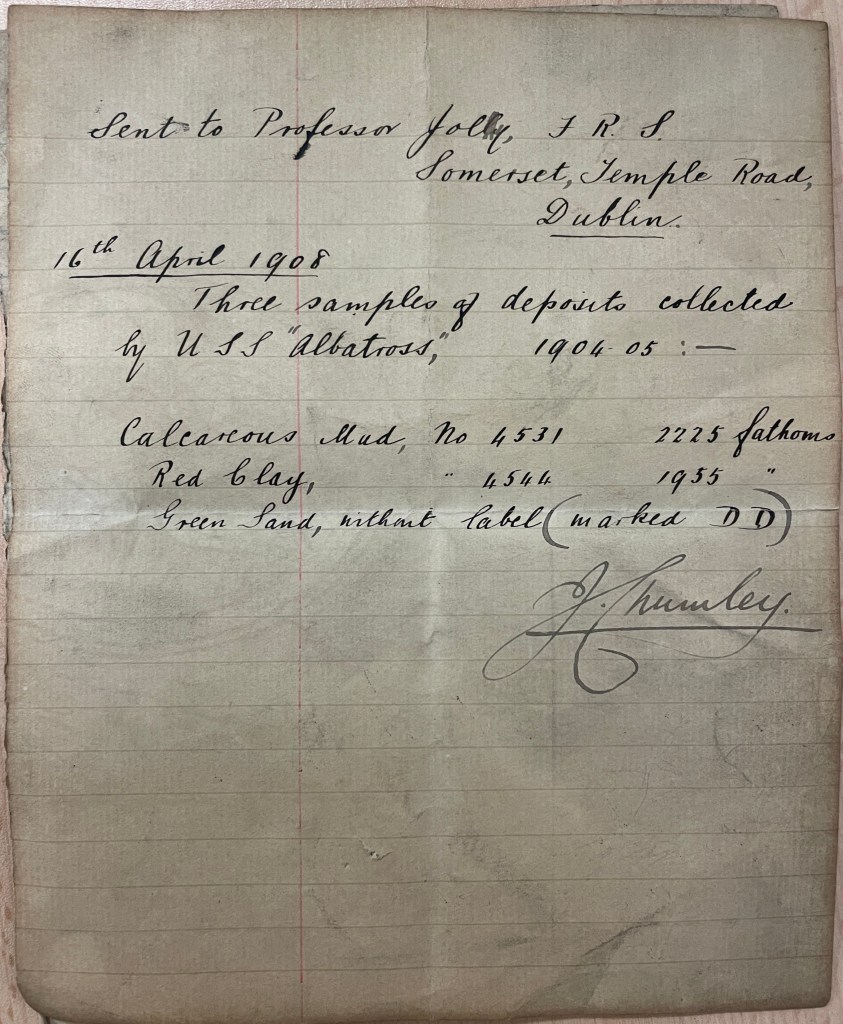 Sent to Professor Jolly, F R. S.
Somerset, Temple Road,
Dublin.
16th April 1908
Three samples of deposits collected
by U S S "Albatross," 1904-05 :—
Calcareous Mud, No 4531 2225 fathoms
Red Clay, " 4544 1955 "
Green Sand, without label (marked D D)
J. Chumley.